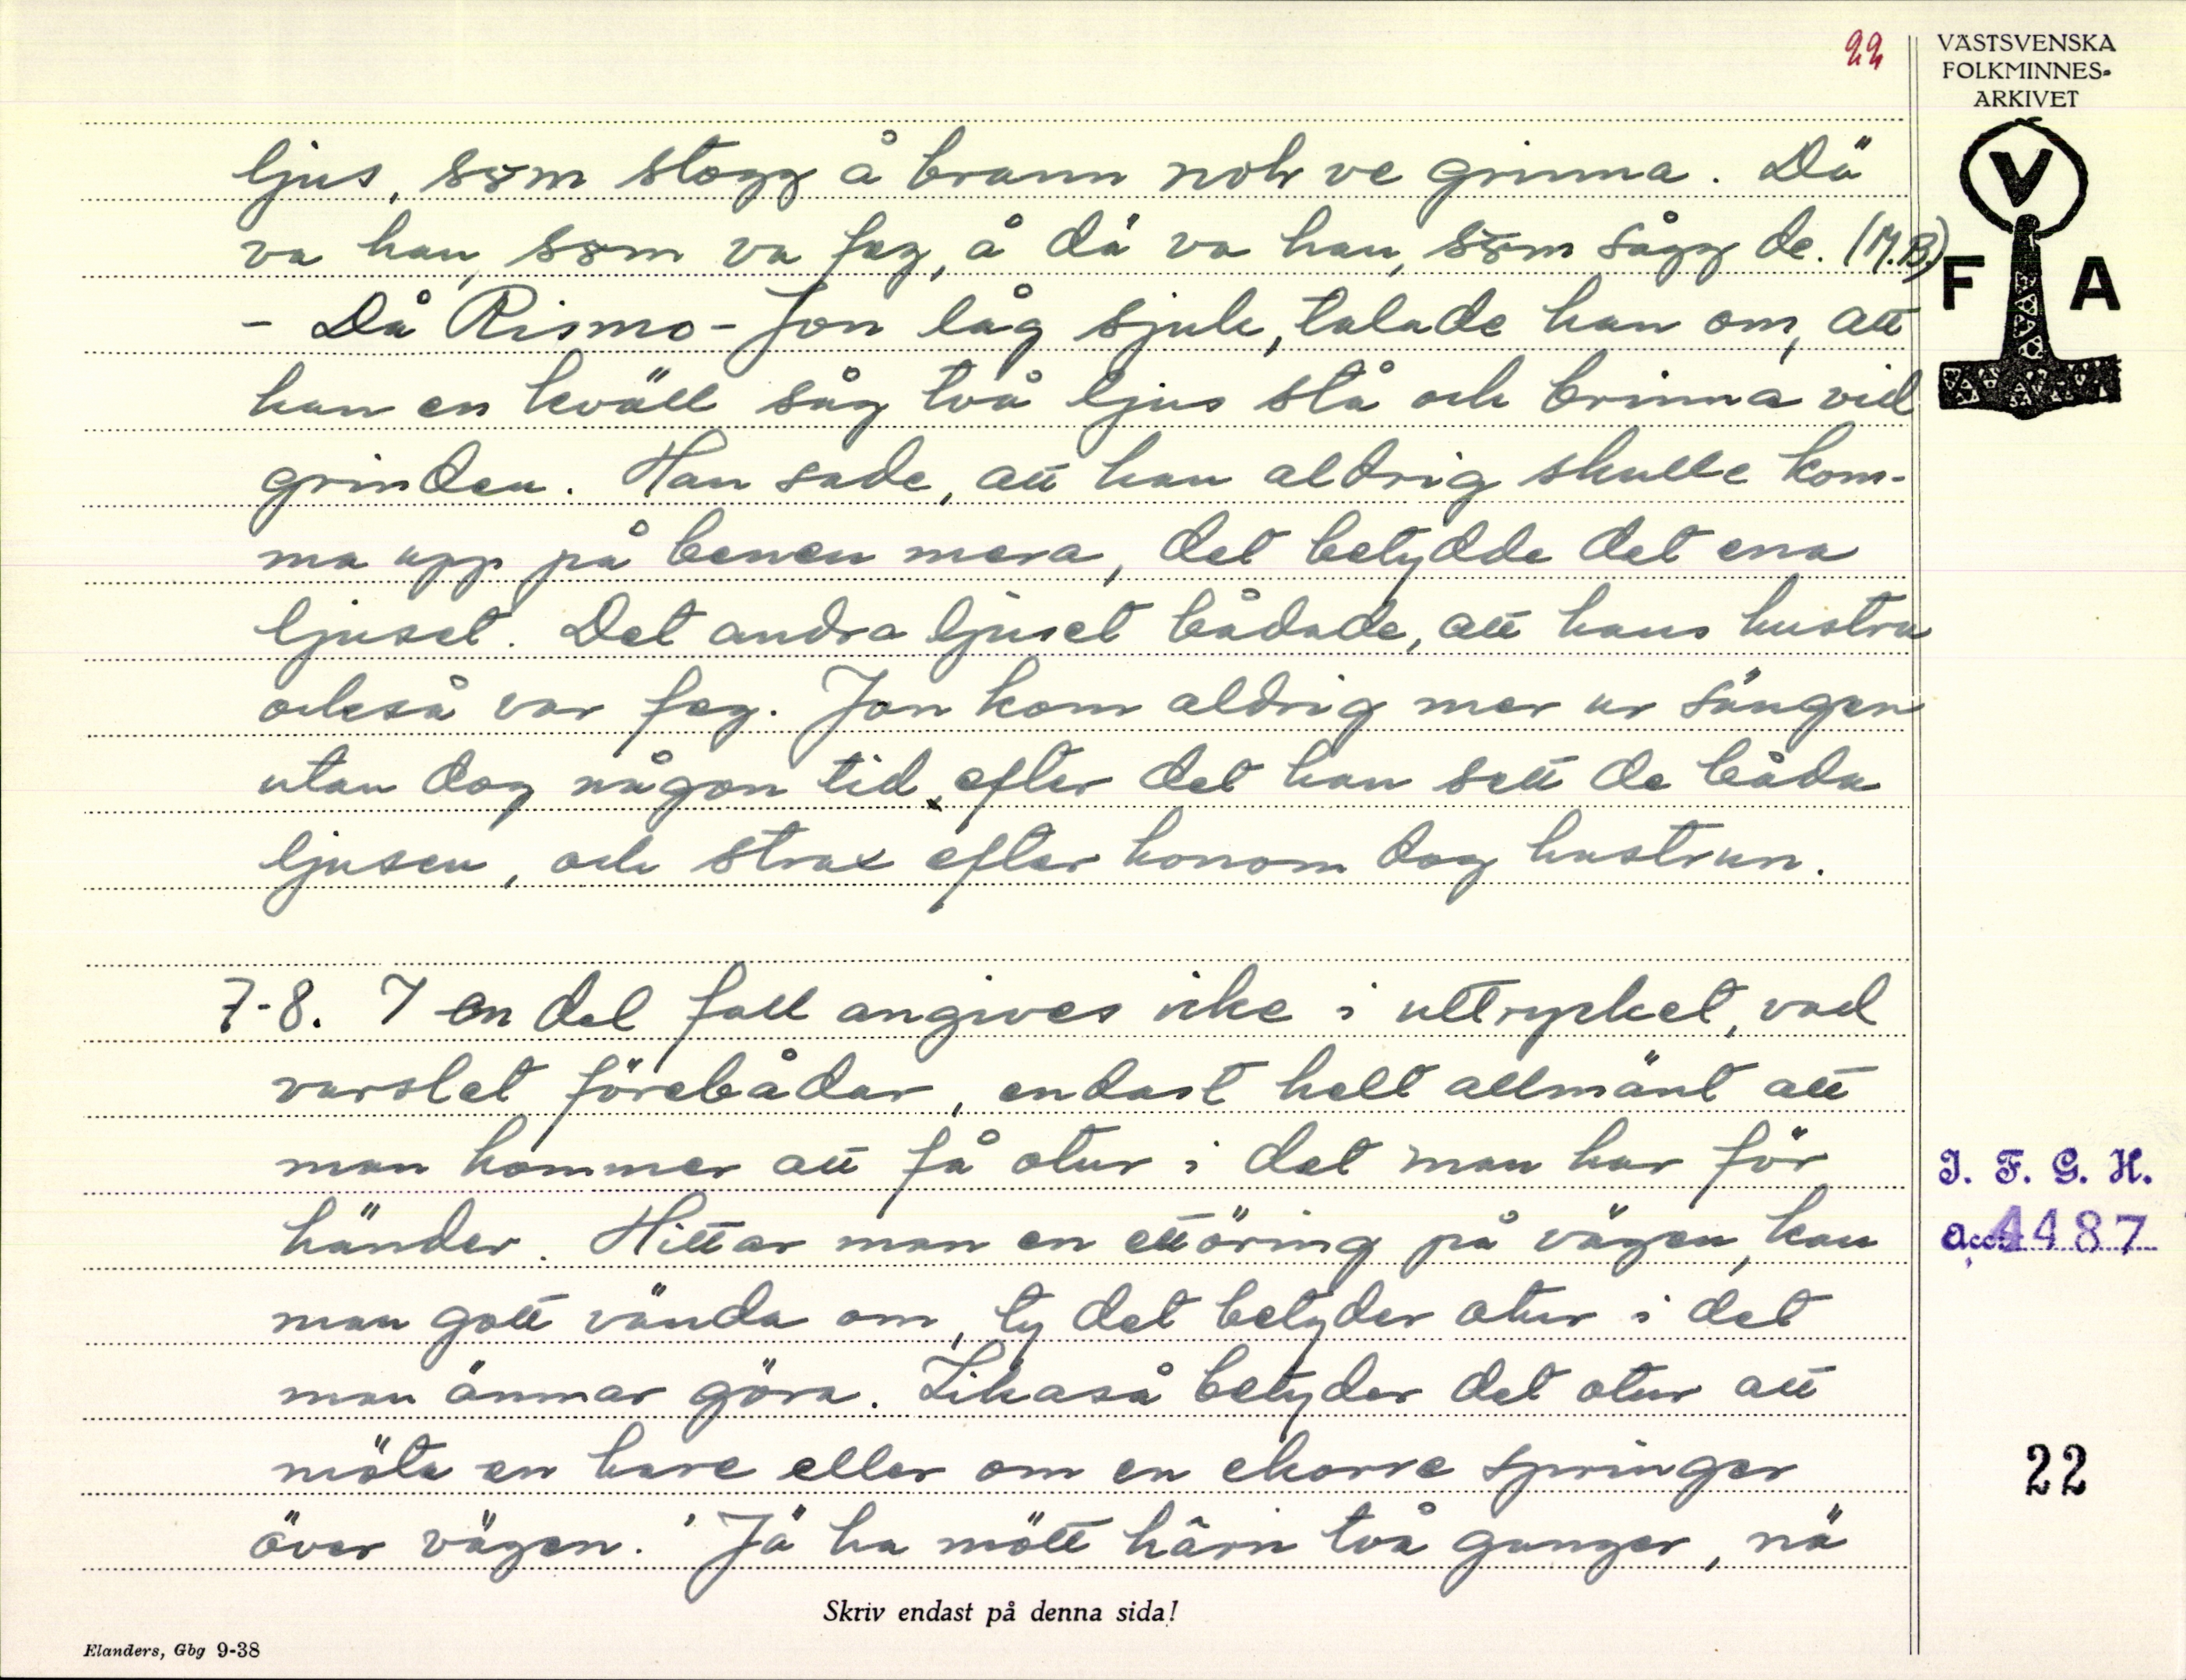 22
VÄSTSVENSKA
FOLKMINNES-
ARKIVET
V
F A
ljus, såm stogg å brann noh ve grinna. Dä
va han, såm va feg, å dä va han, såm sågg de. (M.B.)
- Då Rismo-Jon låg sjuk, talade han om, att
han en kväll såg två ljus stå och brinna vid
grinden. Han sade, att han aldrig skulle kom-
ma upp på benen mera, det betydde det ena
ljuset. Det andra ljuset bådade, att hans hustru
också var feg. Jon kom aldrig mer ur sängen
utan dog någon tid, efter det han sett de båda
ljusen, och strax efter honom dog hustrun.
7-8. I en del fall angives icke i uttrycket, vad
varslet förebådar, endast helt allmänt att
man kommer att få otur i det man har för
händer. Hittar man en ettöring på vägen, kan
man gott vända om, ty det betyder otur i det
man ämnar göra. Likaså betyder det otur att
möta en hare eller om en ekorre springer
över vägen. 'Jä ha mött hârn två ganger, nä
I. F. G. H.
acc. 4487
22
Skriv endast på denna sida!
Elanders, Gbg 9-38